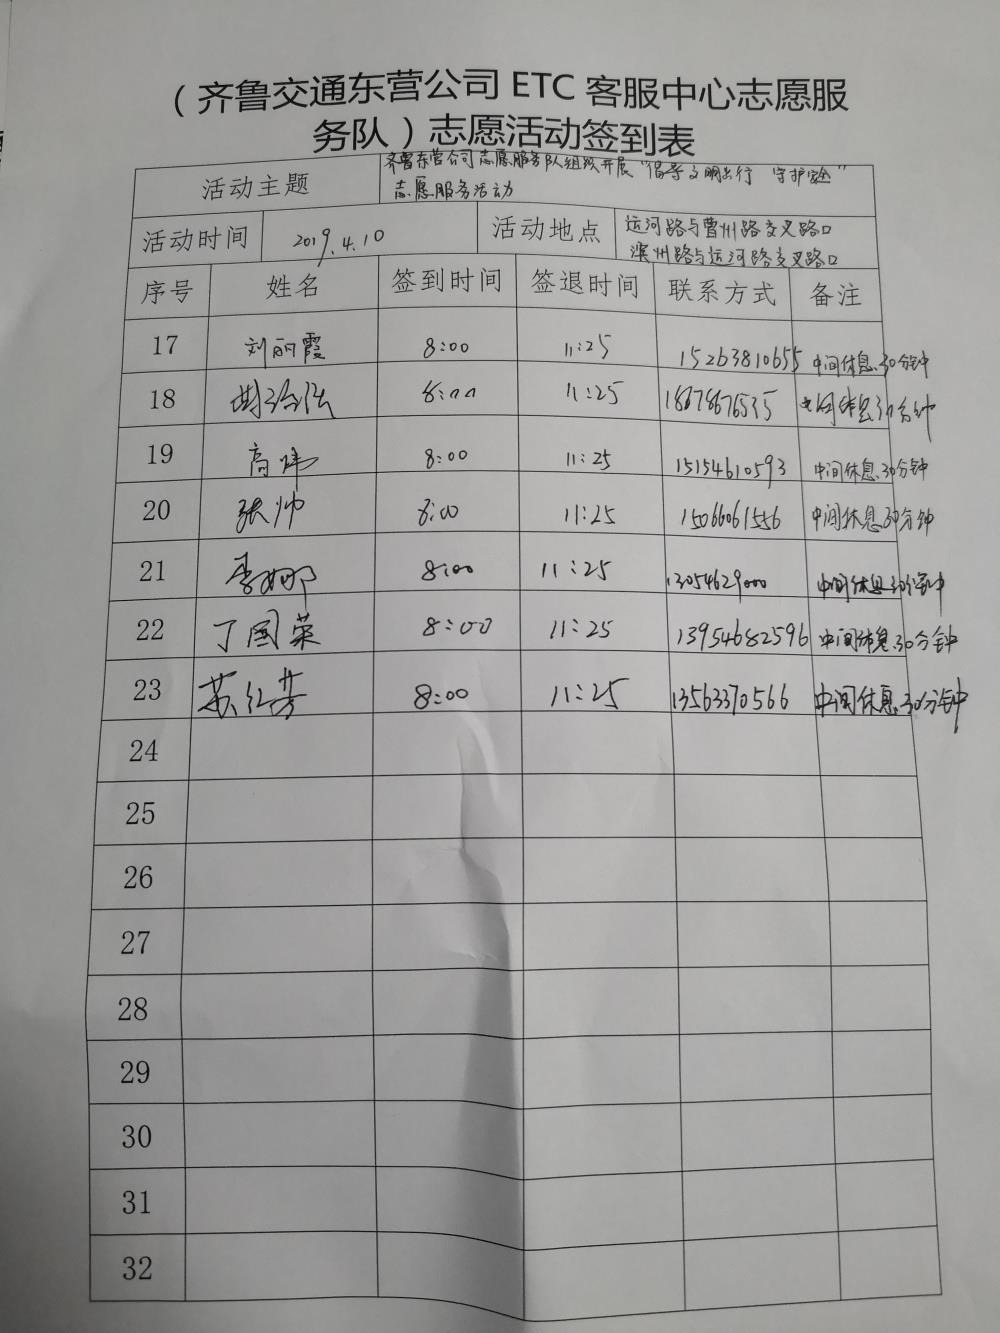 （齐鲁交通东营公司 ETC 客服中心志愿服
务队）志愿活动签到表
活动主题 齐鲁东营公司志愿服务队组织开展“倡导文明出行 守护安全”
志愿服务活动
活动时间 2019.4.10 活动地点 运河路与曹州路交叉路口
滨州路与运河路交叉路口
序号 姓名 签到时间 签退时间 联系方式 备注
17 刘丽霞 8:00 11:25 15263810655 中间休息30分钟
18 8:00 11:25 18678676535 中间休息30分钟
19 高炜 8:00 11:25 15154610593 中间休息30分钟
20 张帅 8:00 11:25 15066061556 中间休息30分钟
21 李娜 8:00 11:25 13054629000 中间休息30分钟
22 丁国荣 8:00 11:25 13954682596 中间休息30分钟
23 苏红芳 8:00 11:25 13563370566 中间休息30分钟
24
25
26
27
28
29
30
31
32